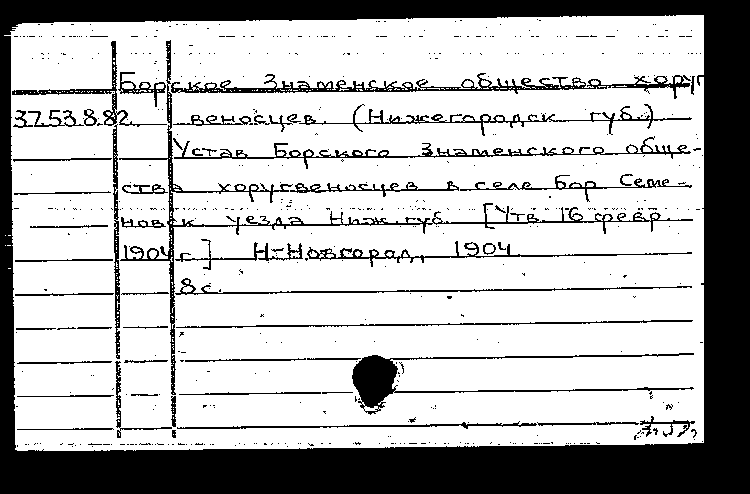 Борское Знаменское общество хоруг
37.53.8.82. веносцев. (Нижегородск губ.)
Устав Борского Знаменского обще-
ства хоругвеносцев в селе Бор Семе-
новск. уезда Ниж. губ. [Утв. 16 февр.
1904 г.] Н-Новгород, 1904
8 с.